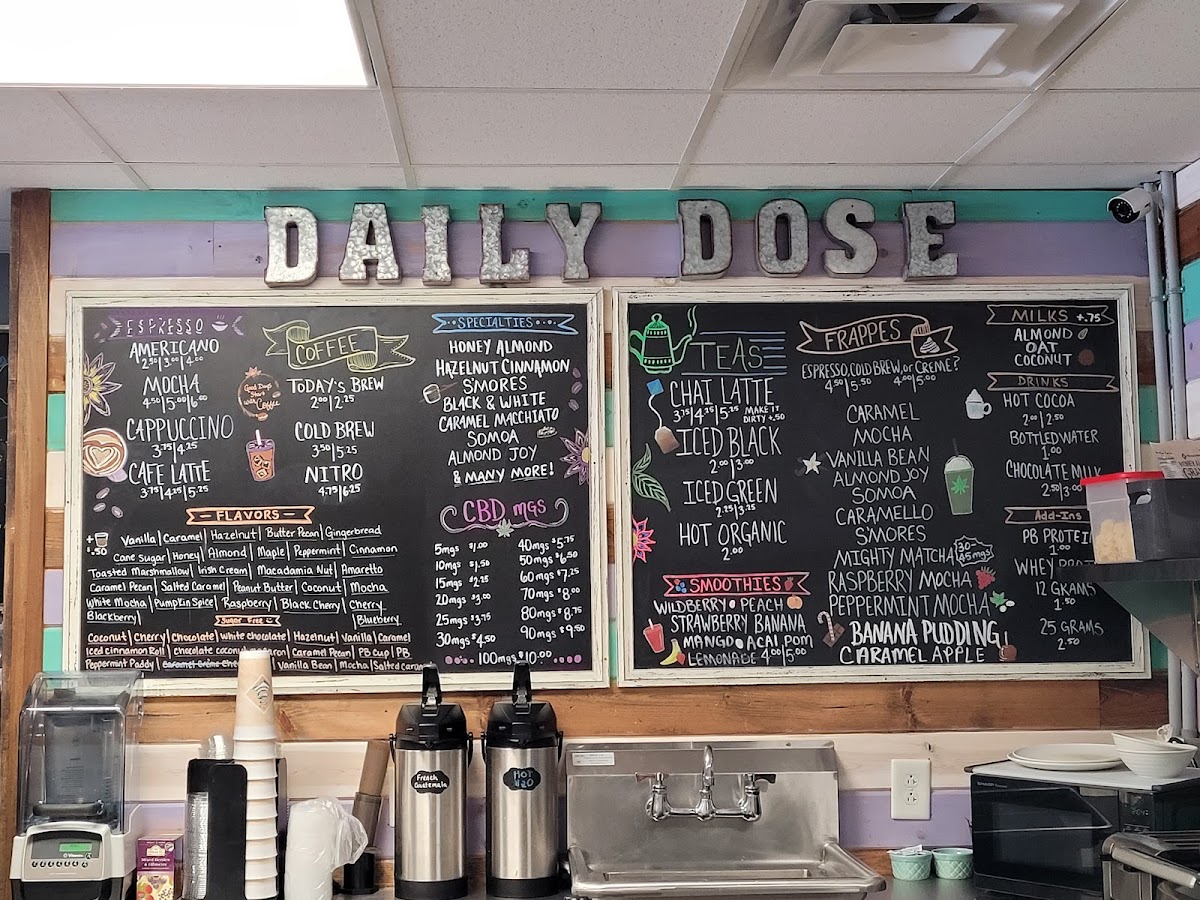 DAILY DOSE
ESPRESSO
AMERICANO
2.50|3.00|4.00
MOCHA
4.50|5.00|6.00
CAPPUCCINO
3.75|4.25
CAFE LATTE
3.75|4.25|5.25
COFFEE
Good Days Start with Coffee
TODAY'S BREW
2.00|2.25
COLD BREW
3.50|5.25
NITRO
4.75|6.25
SPECIALTIES
HONEY ALMOND
HAZELNUT CINNAMON
S'MORES
BLACK & WHITE
CARAMEL MACCHIATO
SOMOA
ALMOND JOY
& MANY MORE!
FLAVORS
+ .50
Vanilla | Caramel | Hazelnut | Butter Pecan | Gingerbread
Cane Sugar | Honey | Almond | Maple | Peppermint | Cinnamon
Toasted Marshmallow | Irish Cream | Macadamia Nut | Amaretto
Caramel Pecan | Salted Caramel | Peanut Butter | Coconut | Mocha
White Mocha | Pumpkin Spice | Raspberry | Black Cherry | Cherry
Blackberry | Blueberry
Sugar Free
Coconut | Cherry | Chocolate | White chocolate | Hazelnut | Vanilla | Caramel
Iced Cinnamon Roll | chocolate coconut | Caramel Pecan | PB Cup | PB
Peppermint Paddy | Vanilla Bean | Mocha | Salted
CBD MGS
5mgs $1.00
10mgs $1.50
15mgs $2.25
20mgs $3.00
25mgs $3.75
30mgs $4.50
40mgs $5.75
50mgs $6.50
60mgs $7.25
70mgs $8.00
80mgs $8.75
90mgs $9.50
100mgs $10.00
TEAS
CHAI LATTE
3.75|4.25|5.25 MAKE IT DIRTY +.50
ICED BLACK
2.00|3.00
ICED GREEN
2.25|3.25
HOT ORGANIC
2.00
SMOOTHIES
WILDBERRY • PEACH
STRAWBERRY BANANA
MANGO • ACAI POM
LEMONADE 4.00|5.00
FRAPPES
ESPRESSO, COLD BREW, or CREME?
4.50|5.50 4.00|5.00
CARAMEL
MOCHA
VANILLA BEAN
ALMOND JOY
SOMOA
CARAMELLO
S'MORES
MIGHTY MATCHA
RASPBERRY MOCHA
PEPPERMINT MOCHA
BANANA PUDDING
CARAMEL APPLE
MILKS +.75
ALMOND
OAT
COCONUT
DRINKS
HOT COCOA
2.00|2.50
BOTTLED WATER
1.00
CHOCOLATE MILK
2.50
Add-Ins
PB PROTEIN
1.00
WHEY
12 GRAMS
1.50
25 GRAMS
2.50
French Guatemala
HOT H2O